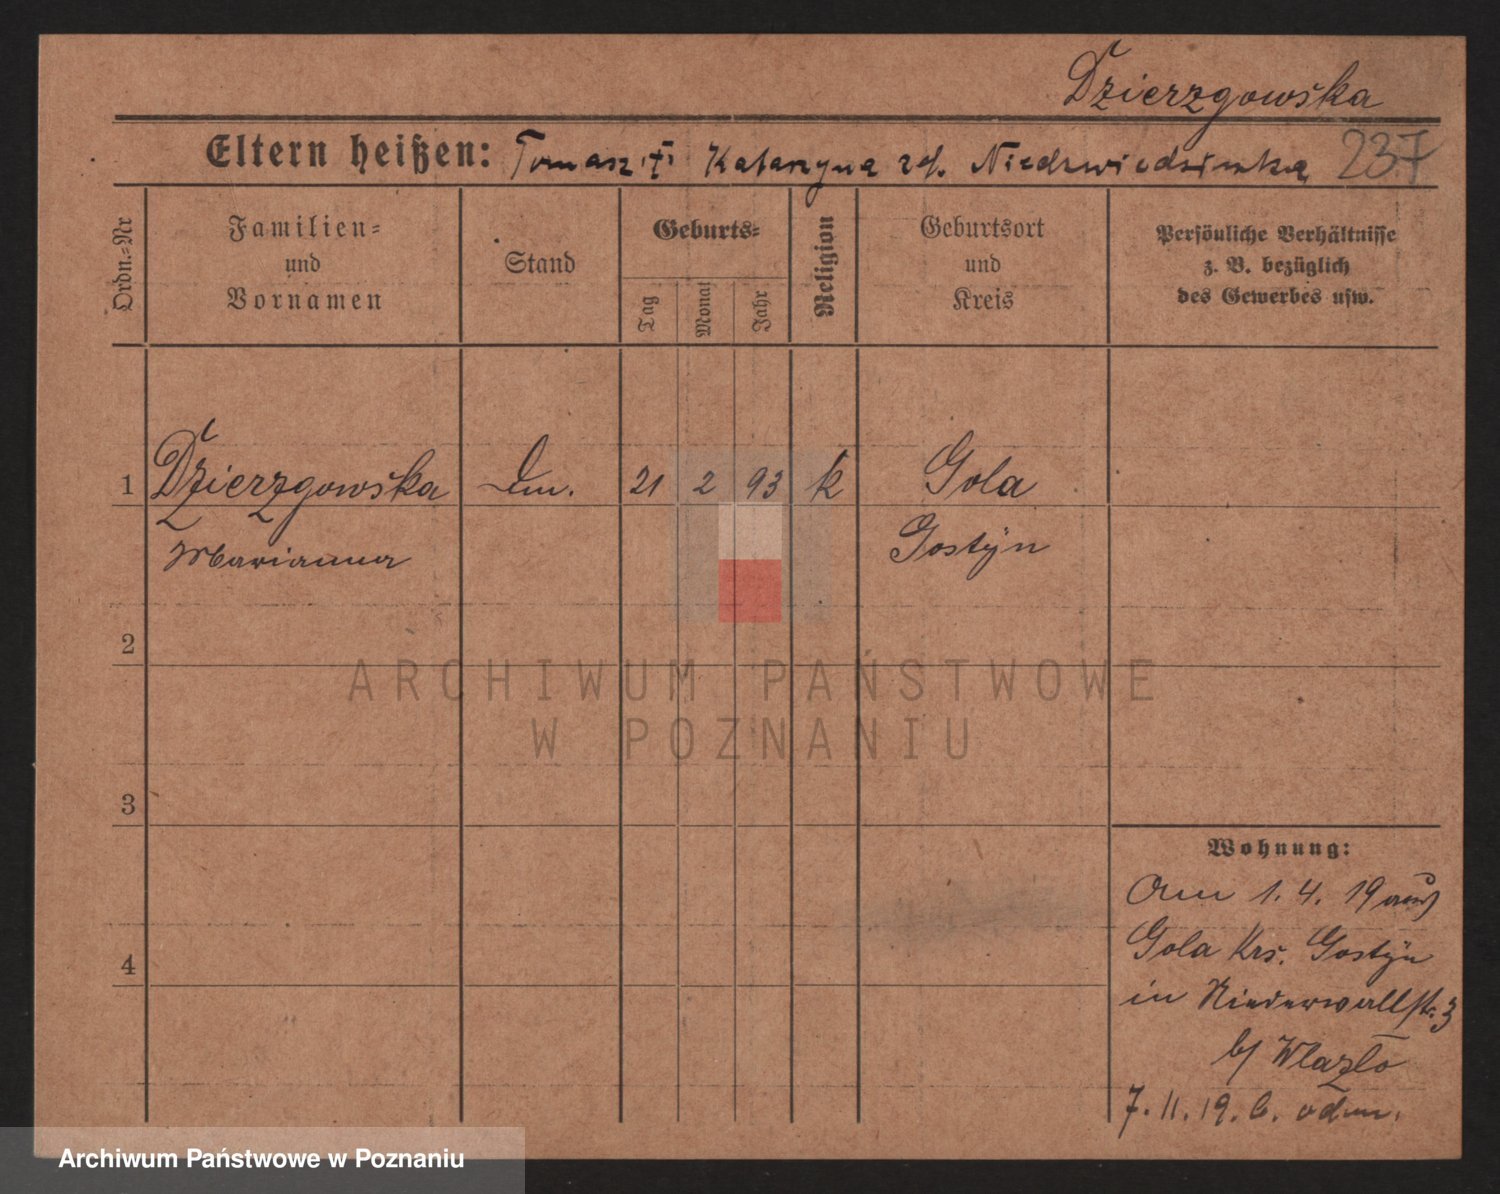 Dzierzgowska
Eltern heißen: Tomasz Katarzyna Niedzwiedzinska 237
Ordn.-Nr
Familien-
und
Vornamen
Stand
Geburts-
Tag
Monat
Jahr
Religion
Geburtsort
und
Kreis
Persönliche Verhältnisse
z. B. bezüglich
des Gewerbes usw.
1 Dzierzgowska 21 2 93 k Gola
Marianna Gostyn
2
3
4
Wohnung:
Am 1. 4. 19 aus
Gola Krs. Gostyn
in Niederwallstr. 3
b/ Wlazło
7. 11. 19.
ARCHIWUM PAŃSTWOWE
W POZNANIU
Archiwum Państwowe w Poznaniu